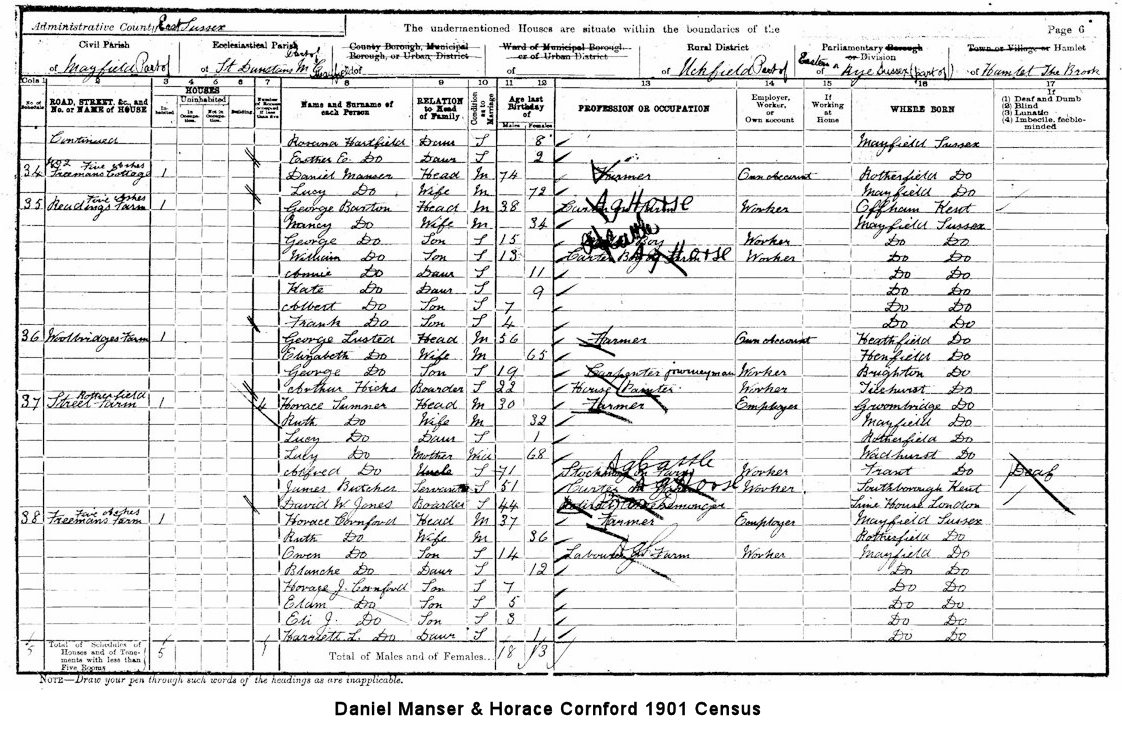 Administrative County East Sussex
The undermentioned Houses are situate within the boundaries of the
Page 6
Civil Parish
Ecclesiastical Parish
County Borough, Municipal Borough, or Urban District
Ward of Municipal Borough or of Urban District
Rural District
Parliamentary Borough or Division
Town or Village or Hamlet
of Mayfield Part of
of St Dunstans
of
of
of Uckfield Part of
of Rye Sussex (part of)
of Hamlet The Brook
Cols 1 2 3 4 5 6 7 8 9 10 11 12 13 14 15 16 17
No. of Schedule
ROAD, STREET, &c., and No. or NAME of HOUSE
HOUSES
Inhabited
Uninhabited
In Occupation
Not in Occupation
Building
Name and Surname of each Person
RELATION to Head of Family
Condition as to Marriage
Age last Birthday of
Males Females
PROFESSION OR OCCUPATION
Employer, Worker, or Own account
If Working at Home
WHERE BORN
If
(1) Deaf and Dumb
(2) Blind
(3) Lunatic
(4) Imbecile, feeble-minded
Continued Rosanna Hartfield Daur S 8 Mayfield Sussex
Easther E. Do Daur S 2
34 No 2 Five Ashes Freemans Cottage 1 Daniel Manser Head M 74 Farmer Own account Rotherfield Do
Lucy Do Wife M 72 Mayfield Do
35 Five Ashes Readings Farm 1 George Barton Head M 38 Ag Horse Worker Offham Kent
Nancy Do Wife M 34 Mayfield Sussex
George Do Son S 15 Cattle Boy Worker Do Do
William Do Son S 13 Carter Boy Ag Horse Worker Do Do
Annie Do Daur S 11 Do Do
Kate Do Daur S 9 Do Do
Albert Do Son S 7 Do Do
Frank Do Son S 4 Do Do
36 Woolbridges Farm 1 George Lusted Head M 56 Farmer Own account Heathfield Do
Elizabeth Do Wife M 65 Henfield Do
George Do Son S 19 Carpenter journeyman Worker Brighton Do
Arthur Hicks Boarder S 22 House Painter Worker Ticehurst Do
37 Rotherfield Street Farm 1 4 Horace Sumner Head M 30 Farmer Employer Groombridge Do
Ruth Do Wife M 32 Mayfield Do
Lucy Do Daur S 1 Rotherfield Do
Lucy Do Mother Wid 68 Wadhurst Do
Alfred Do Uncle S 71 Stockman on Farm Ag Cattle Worker Frant Do Deaf
James Butcher Servant S 51 Carter Ag Horse Worker Southborough Kent
David W Jones Boarder S 44 Lime House London
38 Five Ashes Freemans Farm 1 Horace Cornford Head M 37 Farmer Employer Mayfield Sussex
Ruth Do Wife M 36 Rotherfield Do
Owen Do Son S 14 Labourer on Farm Worker Mayfield Do
Blanche Do Daur S 12 Do Do
Horace J. Cornford Son S 7 Do Do
Edam Do Son S 5 Do Do
Eli J. Do Son S 3 Do Do
Harriett L. Do Daur S 1 Do Do
5 Total of Schedules of Houses and of Tenements with less than Five Rooms 5 1 Total of Males and of Females... 18 13
NOTE—Draw your pen through such words of the headings as are inapplicable.
Daniel Manser & Horace Cornford 1901 Census